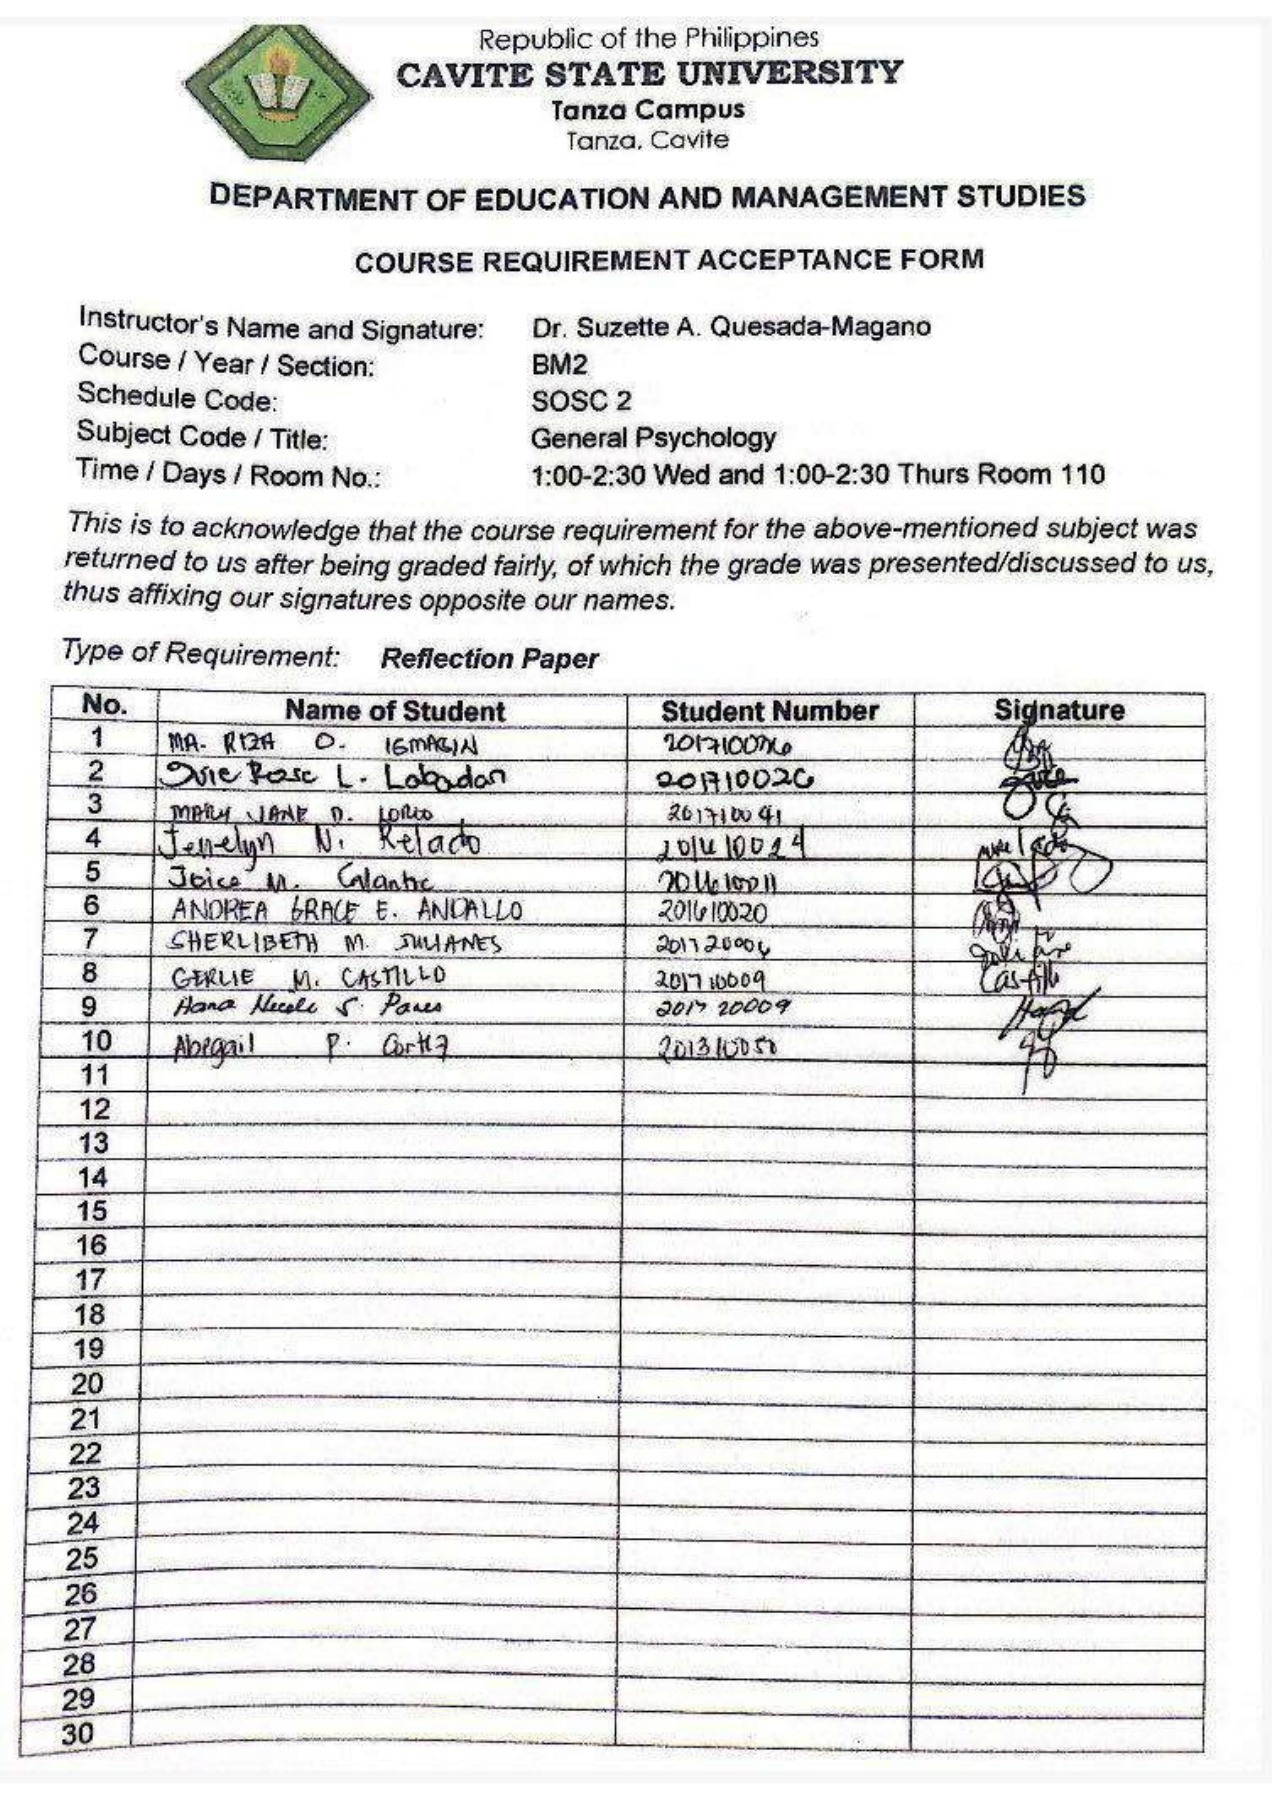 Republic of the Philippines
CAVITE STATE UNIVERSITY
Tanza Campus
Tanza, Cavite
DEPARTMENT OF EDUCATION AND MANAGEMENT STUDIES
COURSE REQUIREMENT ACCEPTANCE FORM
Instructor's Name and Signature: Dr. Suzette A. Quesada-Magano
Course / Year / Section: BM2
Schedule Code: SOSC 2
Subject Code / Title: General Psychology
Time / Days / Room No.: 1:00-2:30 Wed and 1:00-2:30 Thurs Room 110
This is to acknowledge that the course requirement for the above-mentioned subject was
returned to us after being graded fairly, of which the grade was presented/discussed to us,
thus affixing our signatures opposite our names.
Type of Requirement: Reflection Paper
No. Name of Student Student Number Signature
1 MA. RIZA O. IGMASIN
2 Rose L. Labadan
3 MARY JANE D. 201710041
4 Jennelyn N. Relado 201610024
5 Joice M. Galante 201610011
6 ANDREA GRACE E. ANDALLO 201610020
7 SHERLIBETH M. JULIANES 201720006
8 GERLIE M. CASTILLO 201710009 Castillo
9 Hana Nicole S. Pares 201720009
10 Abegail P. Cortez 201310050
11
12
13
14
15
16
17
18
19
20
21
22
23
24
25
26
27
28
29
30